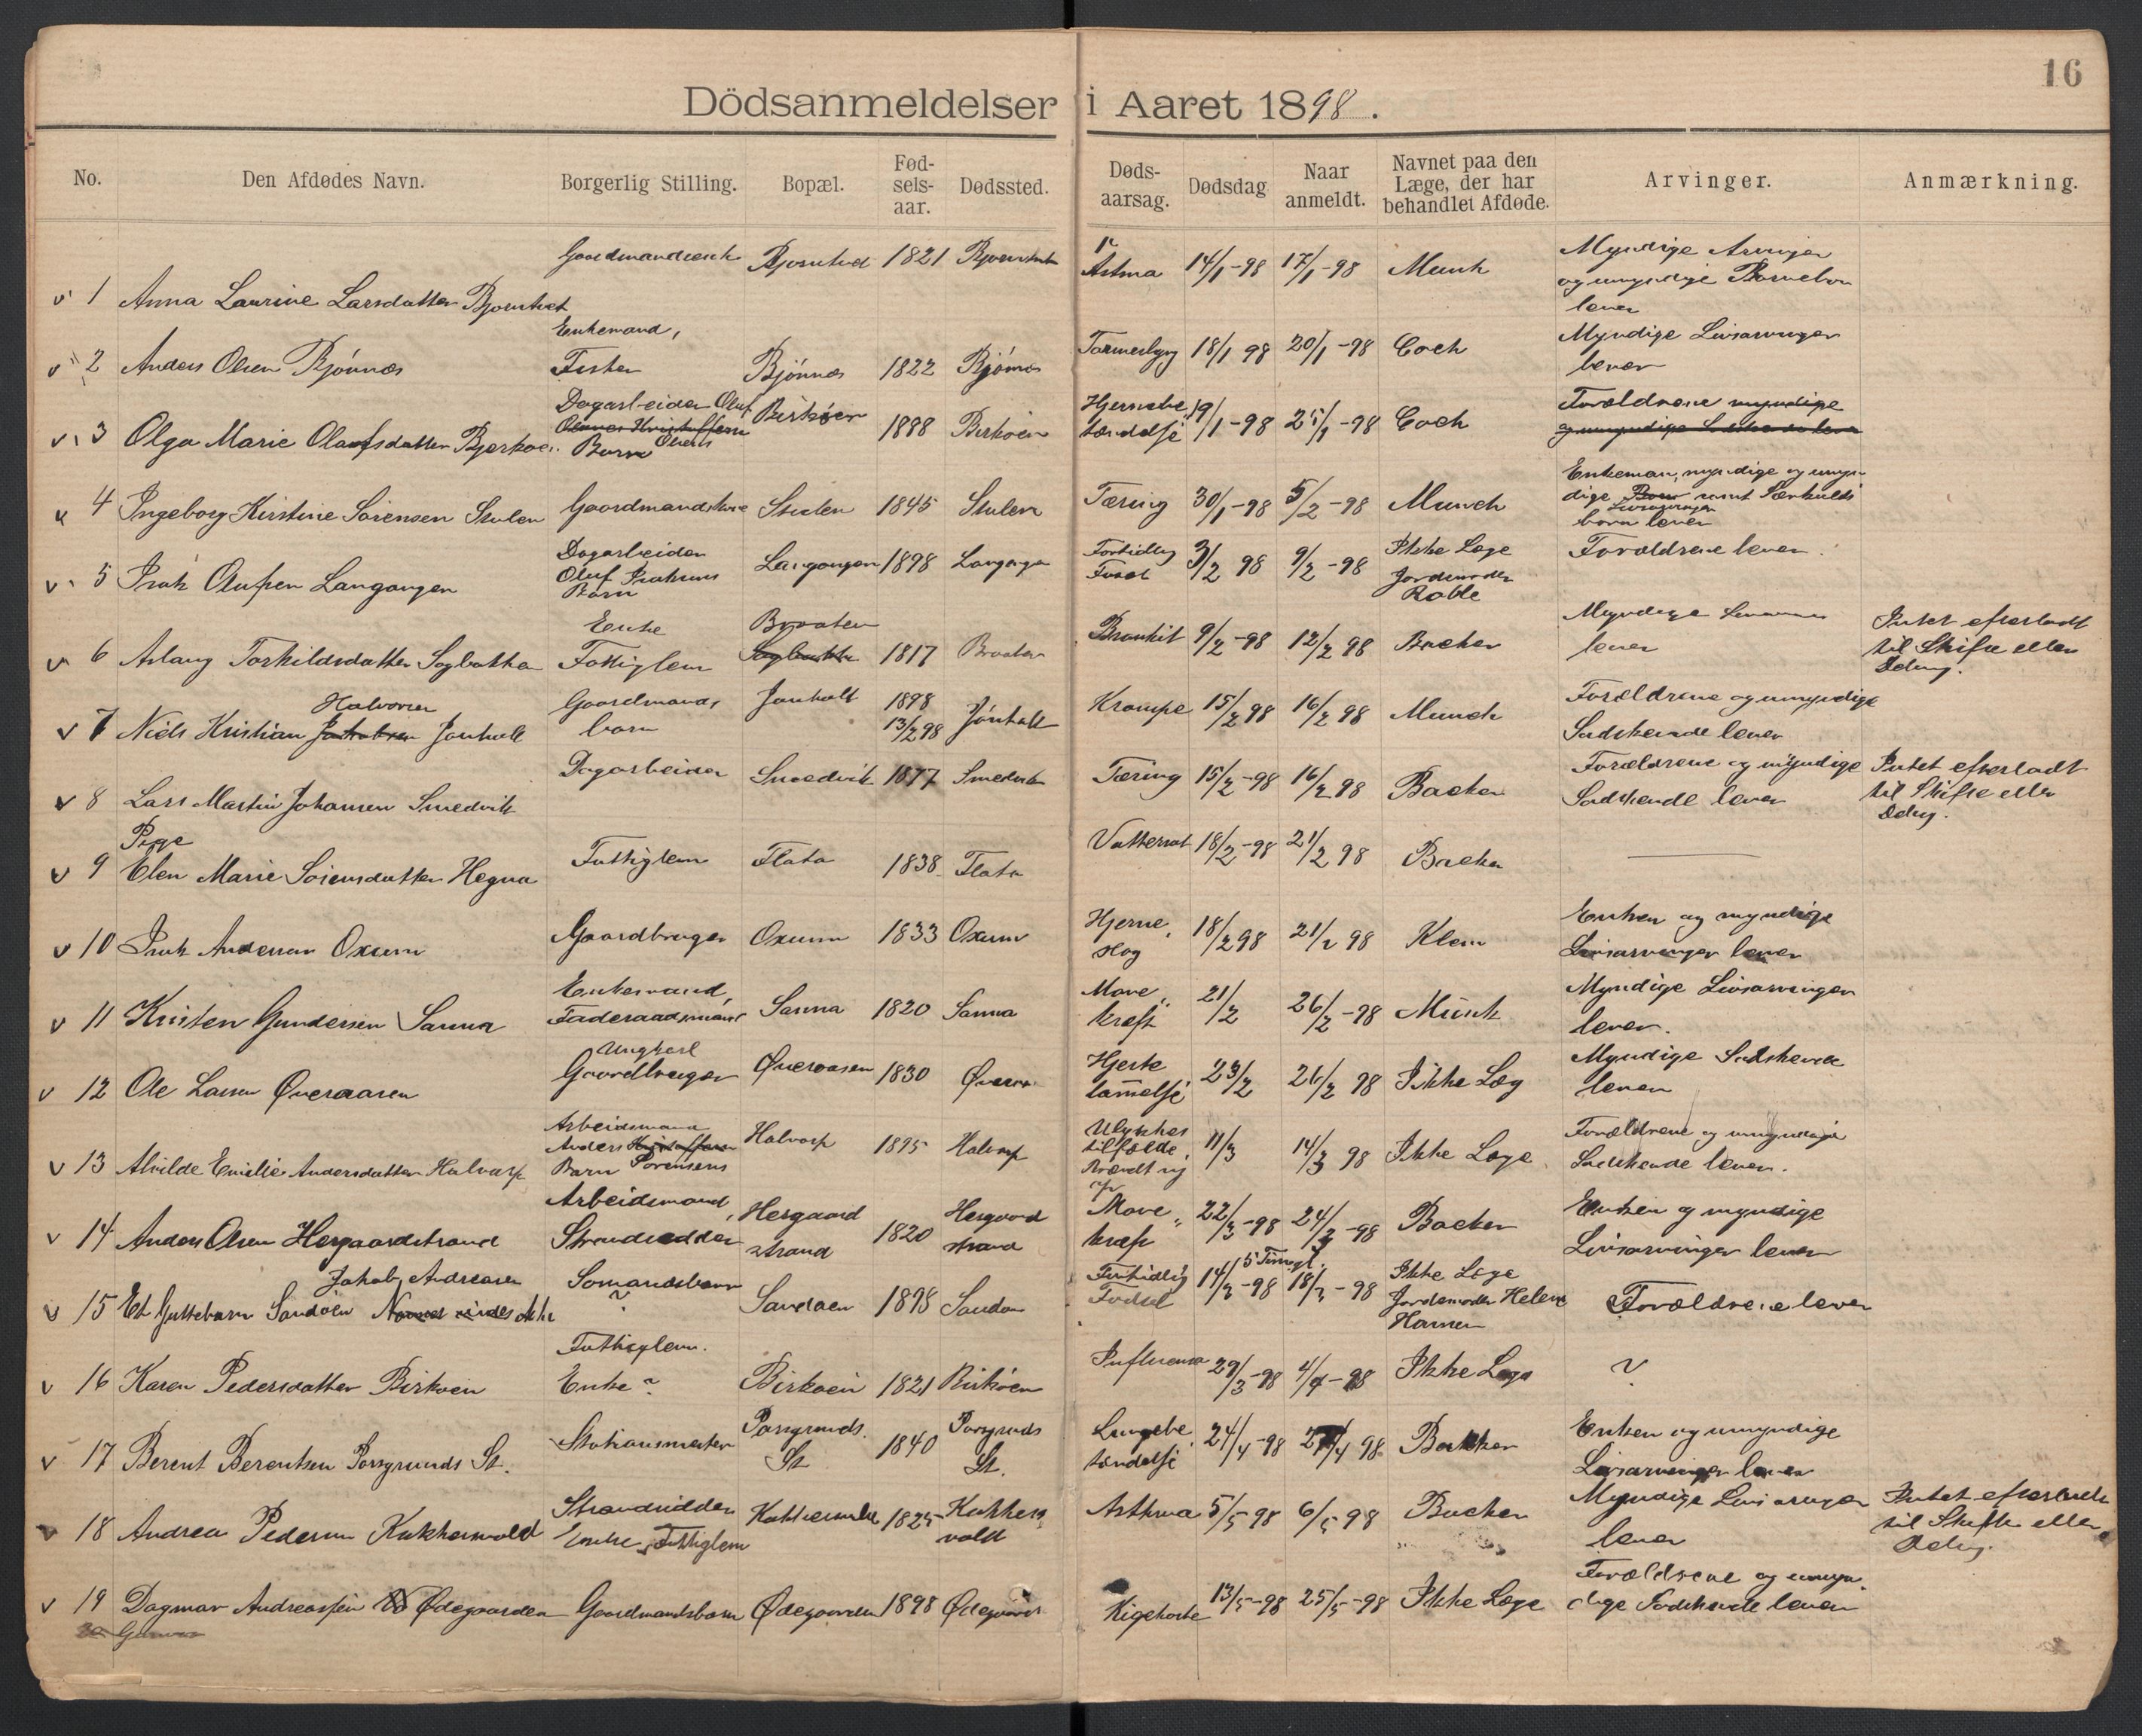 16
Dödsanmeldelser i Aaret 1898.
No. Den Afdødes Navn. Borgerlig Stilling. Bopæl. Fød-sels-aar. Dødssted. Døds-aarsag. Dødsdag Naar anmeldt. Navnet paa den Læge, der har behandlet Afdøde. Arvinger. Anmærkning.
v 1 Anna Laurine Larsdatter 1821 Astma 14/1-98 17/1-98 Munk Myndige Arvinger og umyndige Børnebørn lever
v 2 Anders Olsen Bjönnæs Enkemand, Fisker Bjönnæs 1822 Bjönnæs 18/1 98 20/1-98 Coch Myndige Livsarvinger lever
v 3 Olga Marie Olafsdatter Dagarbeider Oluf Olsens Barn Birköen 1888 Birköen Hjernebetændelse 19/1-98 25/1-98 Coch Forældrene
v 4 Ingeborg Kirstine Sörensen Stulen Gaardmandskone Stulen 1845 Stulen Tæring 30/1-98 5/2-98 Munch Enkeman, myndige og umyndige Livsarvinger samt Særkulds børn lever
v 5 Isak Olufsen Langangen Dagarbeider Oluf Isaksens Barn Langangen 1898 Langangen Fortidlig Fødsel 3/2 98 9/2-98 Ikke Læge Jordmoder Roble Forældrene lever.
v 6 Aslaug Torkildsdatter Sagbakka Enke Fattiglem Braaten Sagbakka 1817 Braaten Bronkit 9/2-98 12/2 98 Backer Myndige lever Intet efterladt til Skifte eller Deling.
v 7 Niels Kristian Halvorsen Jönholt Gaardmands barn Jönholt 1898 13/2 98 Jönholt Krampe 15/2 98 16/2 98 Munch Forældrene og umyndige Sødskende lever
v 8 Lars Martin Johansen Smedvik Dagarbeider Smedvik 1877 Smedvik Tæring 15/2-98 16/2 98 Backer Forældrene og myndige Sødskende lever Intet efterladt til Skifte eller Deling.
v 9 Pige Elen Marie Sörensdatter Hegna Fattiglem Flata 1838 Flata Vattersot 18/2-98 21/2 98 Backer
v 10 Isak Andersen Oxum Gaardbruger Oxum 1833 Oxum Hjerneslag 18/2 98 21/2 98 Klem Enken og myndige Livsarvinger lever
v 11 Kristen Gundersen Sanna Enkemand, Føderaadsmand Sanna 1820 Sanna Mavekræft 21/2 26/2-98 Münk Myndige Livsarvinger lever.
v 12 Ole Larsen Överaasen Ungkarl Gaardbruger Överaasen 1830 Hjertelammelse 23/2 26/2 98 Ikke Læg Myndige Sødskende lever
v 13 Alvilde Emilie Andersdatter Halvarp Arbeidsmand Anders Sörensens Barn Halvarp 1895 Halvarp Ulykkestilfælde, Brændt sig 11/3 14/3 98 Ikke Læge Forældrene og umyndige Sødskende lever.
v 14 Anders Olsen Hergaardstrand Arbeidsmand, Strandsidder Hergaard strand 1820 Hergaard strand Mavekræft 22/3-98 24/3-98 Backer Enken og myndige Livsarvinger lever
v 15 Et Guttebarn Sandöen Jakob Andreasen Sömandsbarn ? Sandöen 1898 Sandöen Fortidlig Fødsel 14/3-98 18/3-98 Ikke Læge Jordemoder Helene Hansen Forældrene lever
v 16 Karen Pedersdatter Birköen Fattiglem. Enke ? Birköen 1821 Birköen Influensa 29/3-98 4/4-98 Ikke Læge ?
v 17 Berent Berentsen Porsgrunds St. Stationsmester Porsgrunds St. 1840 Porsgrunds St. Lungebetændelse 24/4-98 98 Bakker Enken og umyndige Livsarvinger lever
v 18 Andrea Pedersen Kokkersvold Strandsidder Enke, Fattiglem Kokkersvold 1825 Kokkersvold Asthma 5/5 98 6/5 98 Backer Myndige Livsarvinger lever Intet efterladt til Skifte eller Deling.
v 19 Dagmar Andreassen Ödegaarden Gaardmandsbarn Ödegaarden 1898 Ödegaarden Kigehoste 13/5-98 25/5-98 Ikke Læge Forældrene og umyndige Sødskende lever